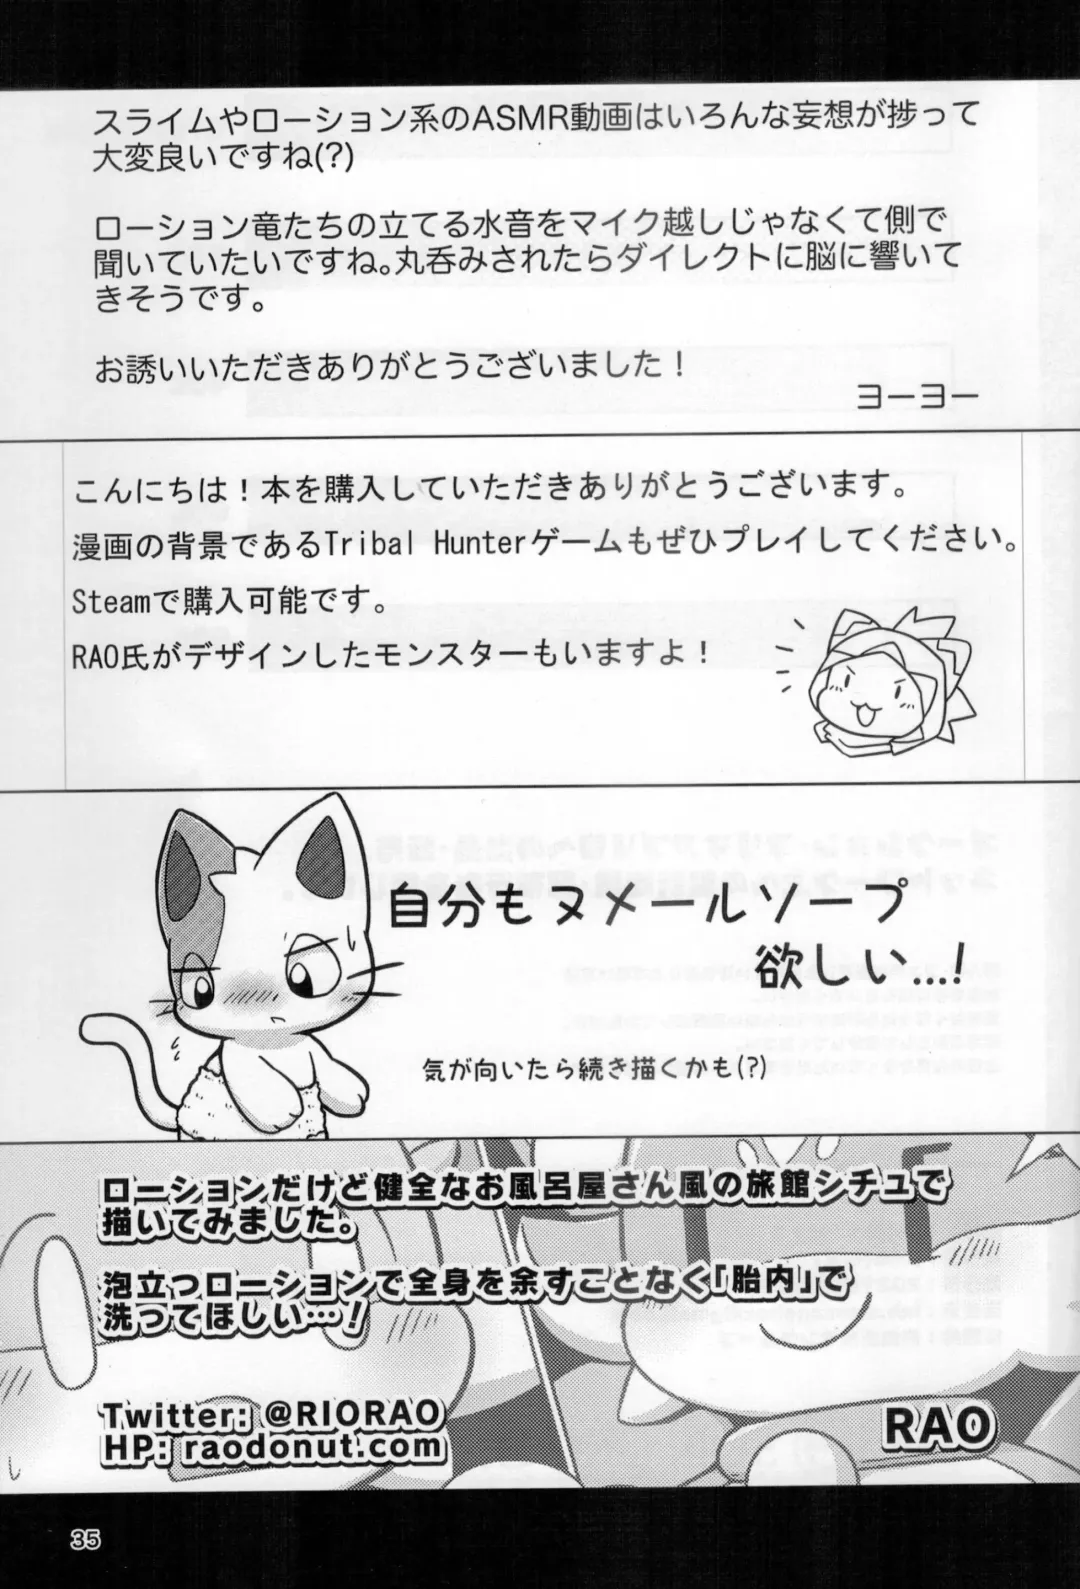 スライムやローション系のASMR動画はいろんな妄想が捗って
大変良いですね(?)
ローション竜たちの立てる水音をマイク越しじゃなくて側で
聞いていたいですね。丸呑みされたらダイレクトに脳に響いて
きそうです。
お誘いいただきありがとうございました！
ヨーヨー
こんにちは！本を購入していただきありがとうございます。
漫画の背景であるTribal Hunterゲームもぜひプレイしてください。
Steamで購入可能です。
RAO氏がデザインしたモンスターもいますよ！
自分もヌメールソープ
欲しい...!
気が向いたら続き描くかも(?)
ローションだけど健全なお風呂屋さん風の旅館シチュで
描いてみました。
泡立つローションで全身を余すことなく「胎内」で
洗ってほしい…！
Twitter: @RIORAO
HP: raodonut.com
RAO
35